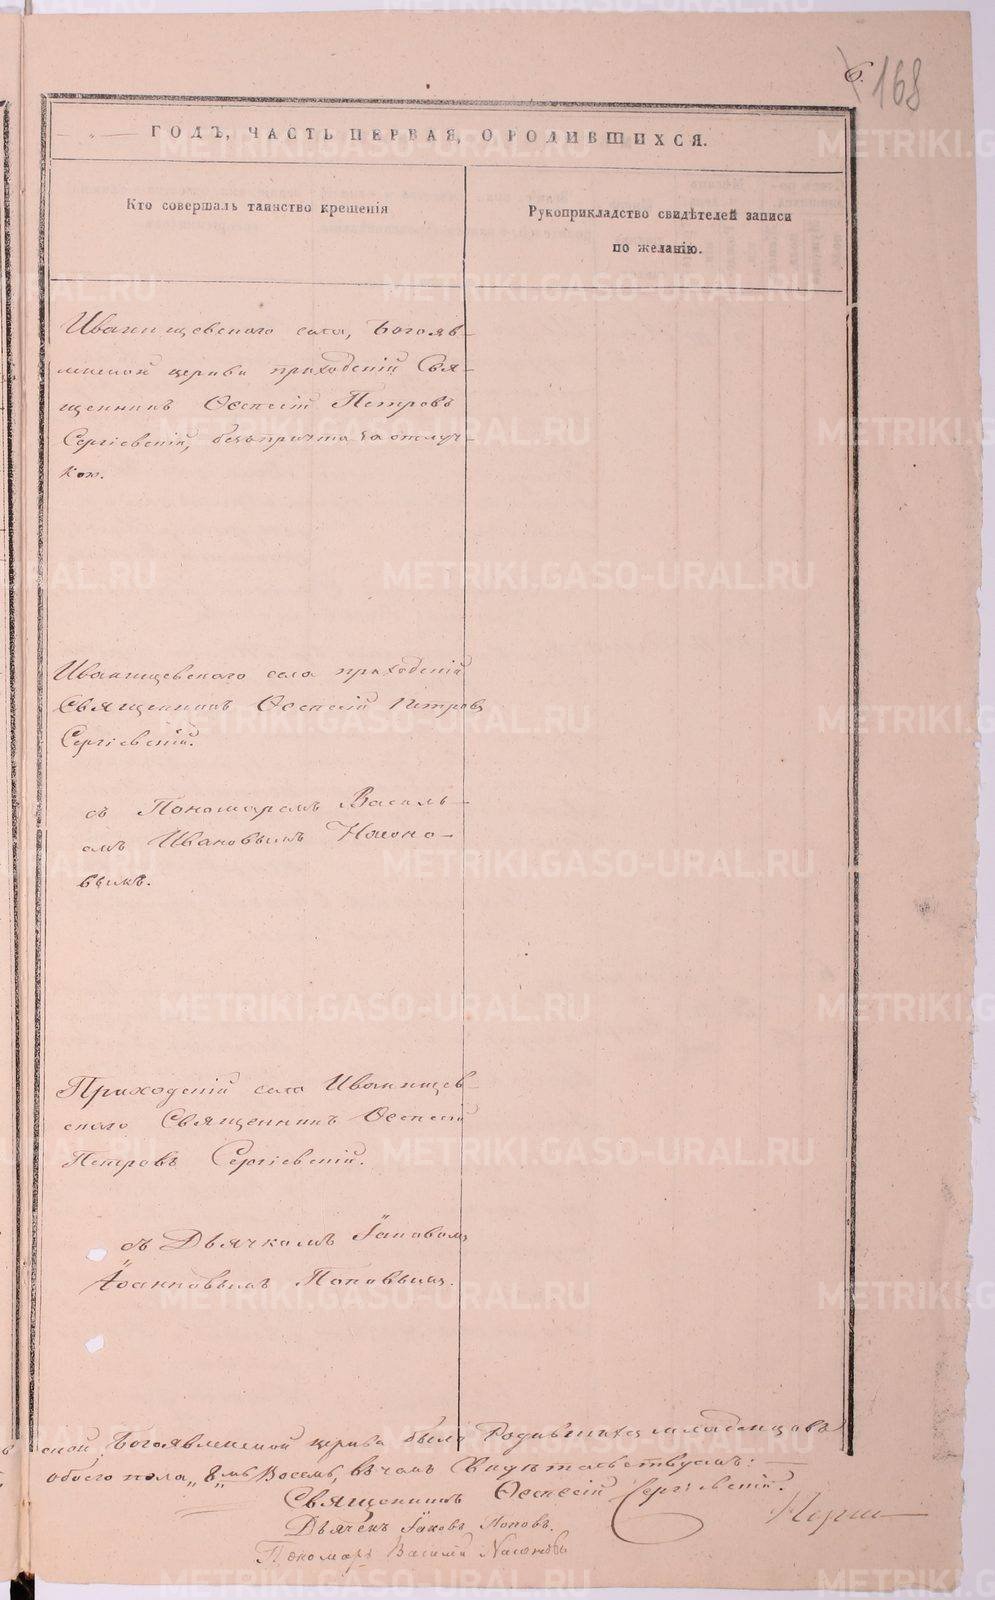 6. 168
ГОДЪ, ЧАСТЬ ПЕРВАЯ, О РОДИВШИХСЯ.
Кто совершалъ таинство крещенія
Рукоприкладство свидѣтелей записи
по желанію.
Иванищевскаго села, Богояв-
ленской церкви приходскій Свя-
щенникъ Петровъ
Сергіевскій, безъ причта за отлуч-
кою.
Иванищевскаго села приходскій
Священникъ Петровъ
Сергіевскій.
съ Пономаремъ Василь-
емъ Ивановымъ Насоно-
вымъ.
Приходскій села Иванищев-
скаго Священникъ
Петровъ Сергіевскій.
съ Дьячкомъ Іаковомъ
Іоанновымъ Поповымъ.
ской Богоявленской церкви было Родившихся младенцовъ
обоего пола „8“мь Восемь, въ чемъ Свидѣтельствуемъ:
Священникъ Сергіевскій.
Дьячекъ Іаковъ Поповъ.
Пономарь Василій Насоновъ
METRIKI.GASO-URAL.RU